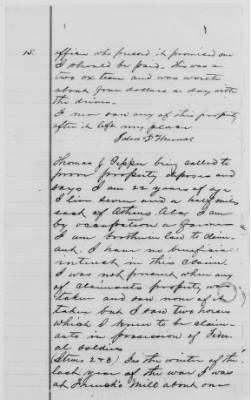 15.
officer who pressed it promised me
I should be paid. This was a
two ox team and was worth
about four dollars a day with
the driver.
I never saw any of this property
after it left my place
John F. Thomas
Thomas J Tepper being called to
prove property deposes and
says I am 22 years of age
I live seven and a half miles
east of Athens Ala. I am
by occupation a farmer
I am brother in law to claim-
ant. I have no beneficial
interest in this claim.
I was not present when any
of claimants property was
taken and saw none of it
taken but I saw two horses
which I knew to be claim-
ants in possession of Feder-
al soldiers
(Items 2 & 3) In the winter of the
last year of the war I was
at Mill about one